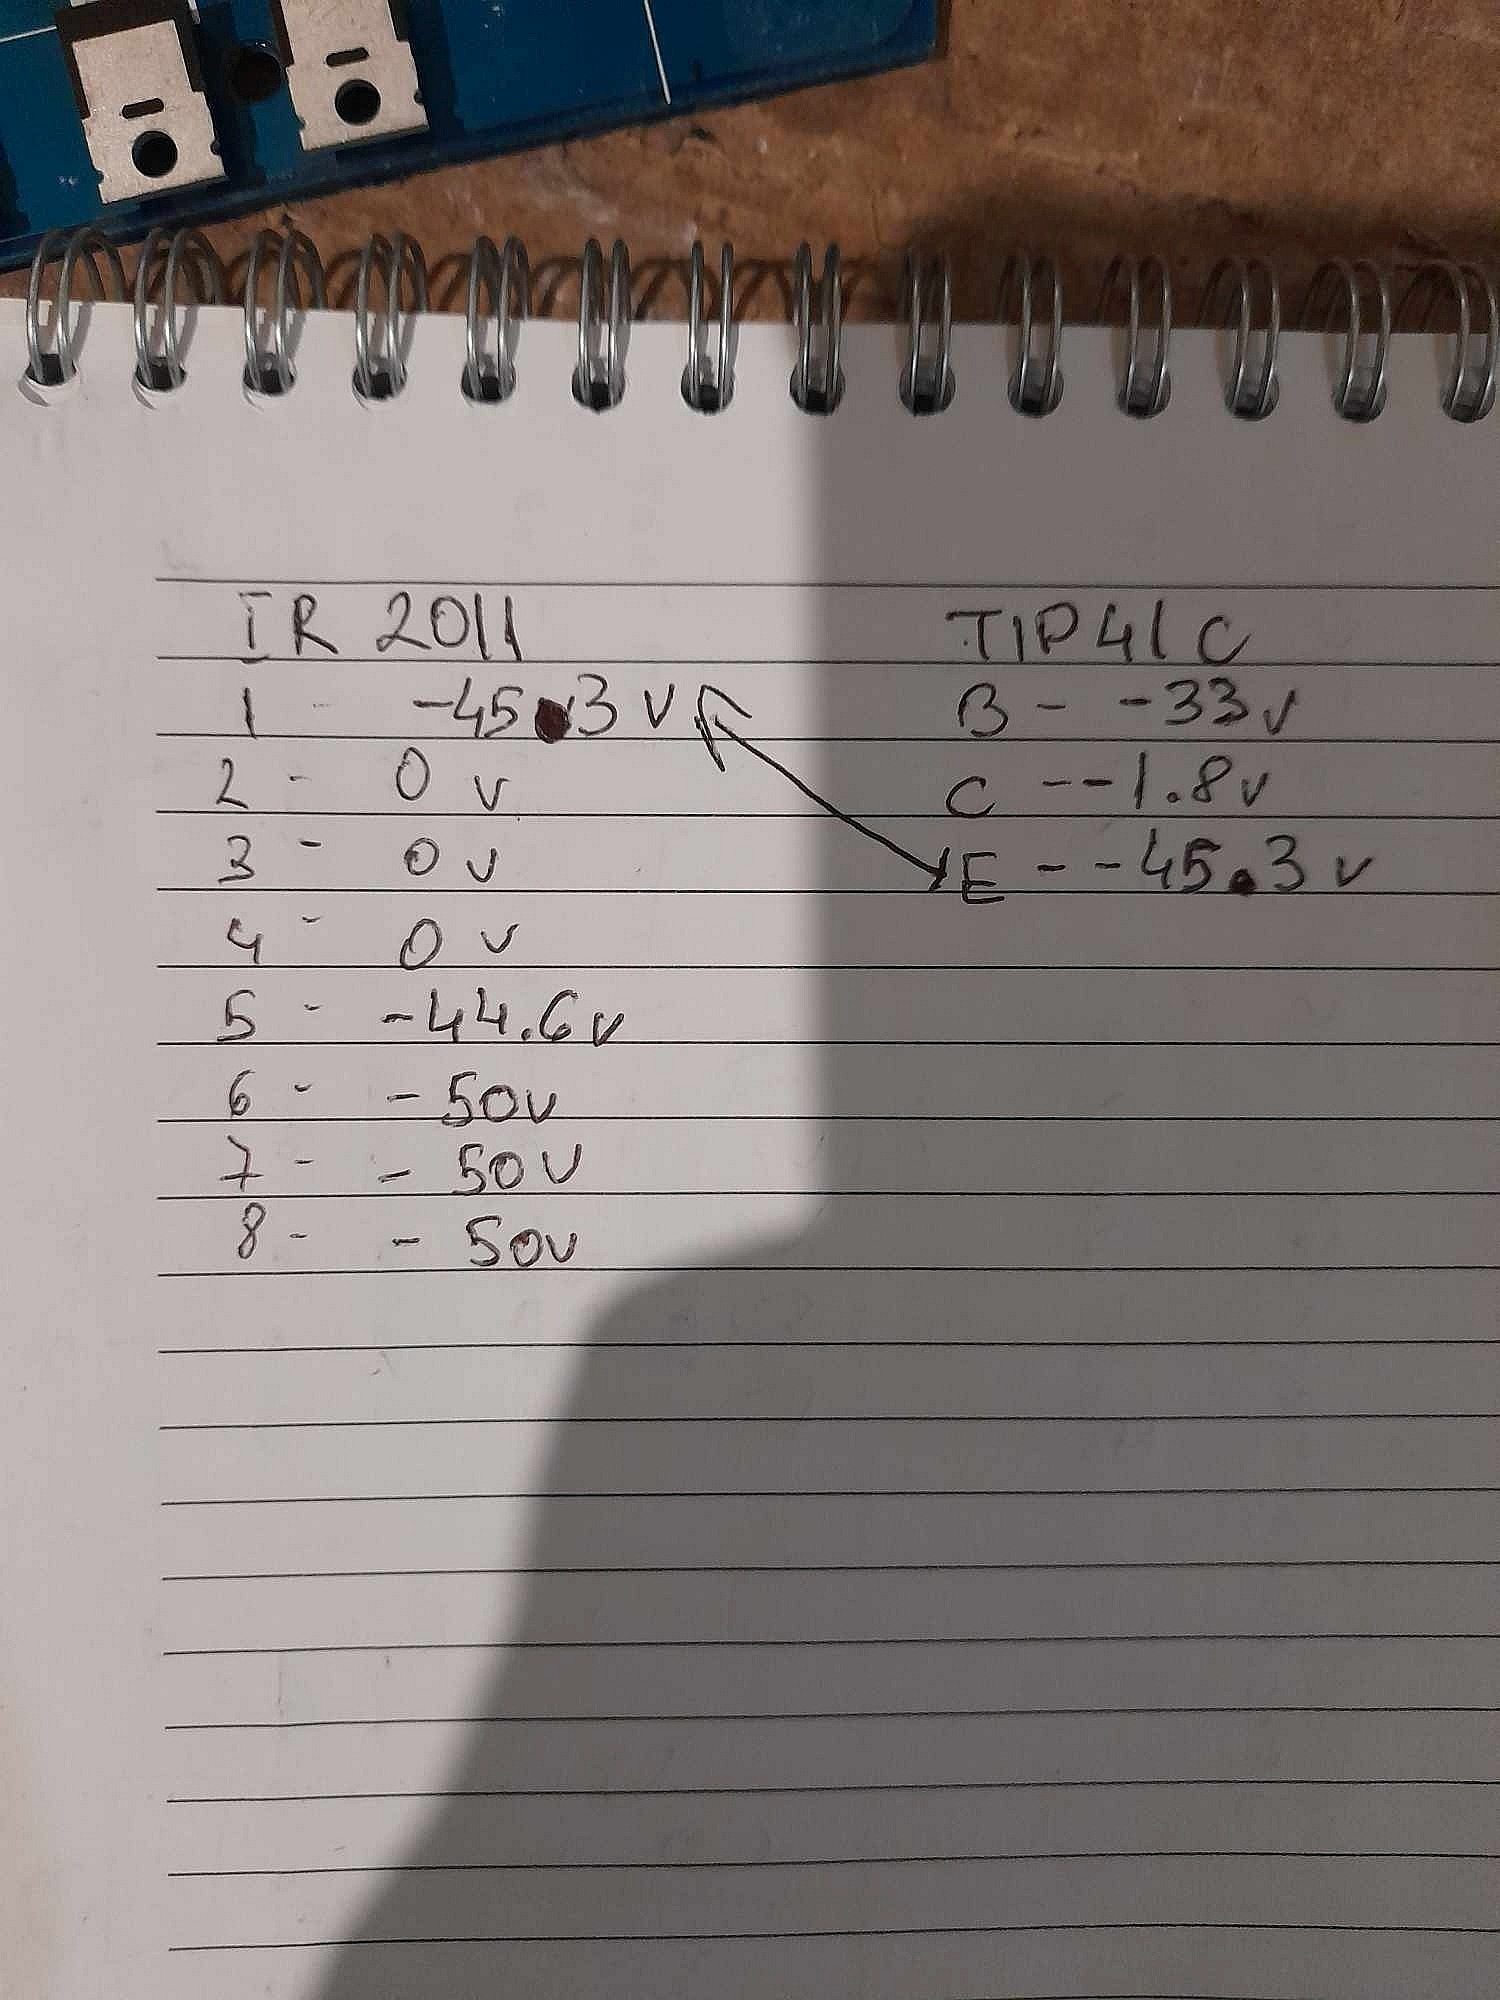 IR 2011
1 - -45.3 v
2 - 0 v
3 - 0 v
4 - 0 v
5 - -44.6v
6 - -50v
7 - - 50v
8 - - 50v
TIP41C
B - -33v
C - -1.8v
E - -45.3v